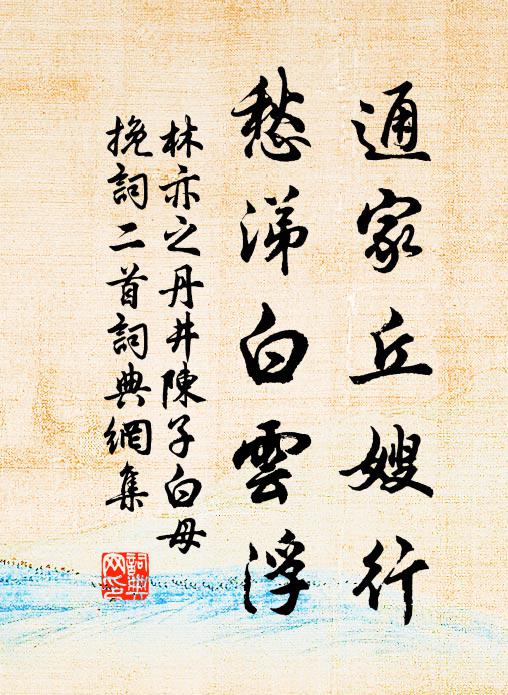 通家丘嫂行
愁涕白雲浮
林亦之丹井陳子白母
挽詞二首詞典網集